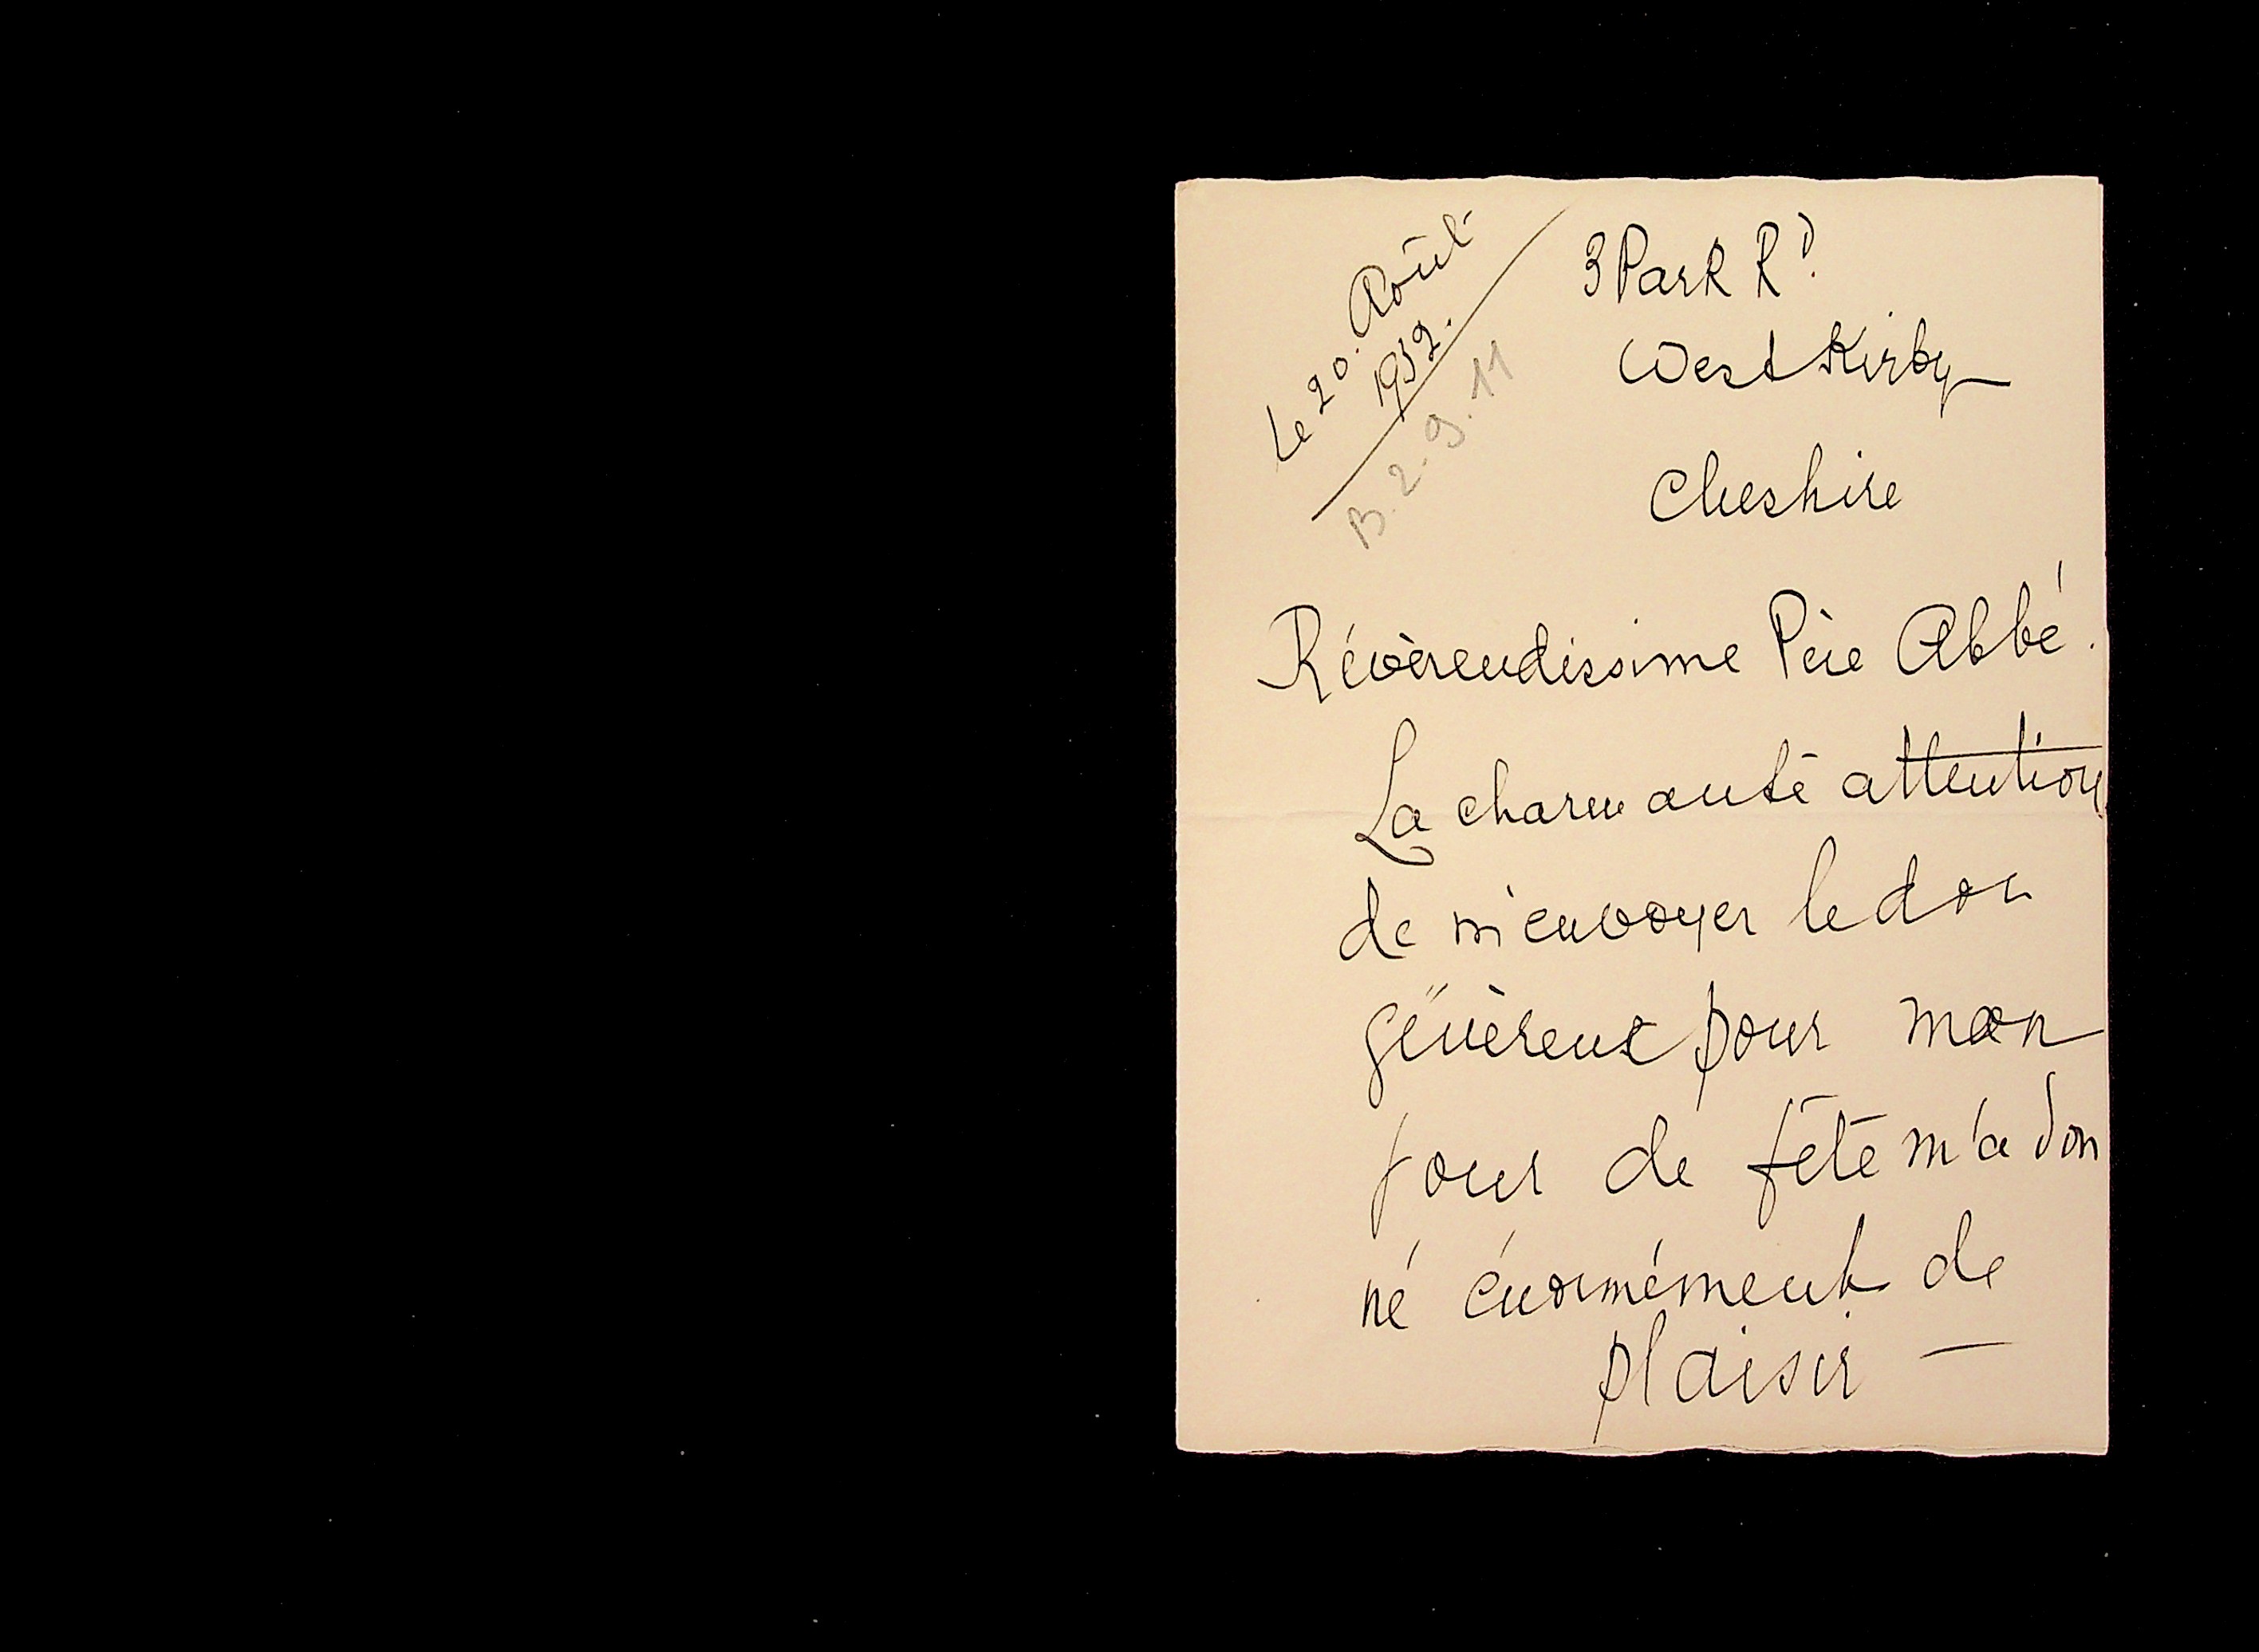 Le 20. Août
1932.
B. 2-9.11
3 Park Rd.
West Kirby
Cheshire
Révèrendissime Père Abbé.
La charmante attention
de m'envoyer le don
génèreux pour mon
jour de fête m'a don
né énormément de
plaisir —